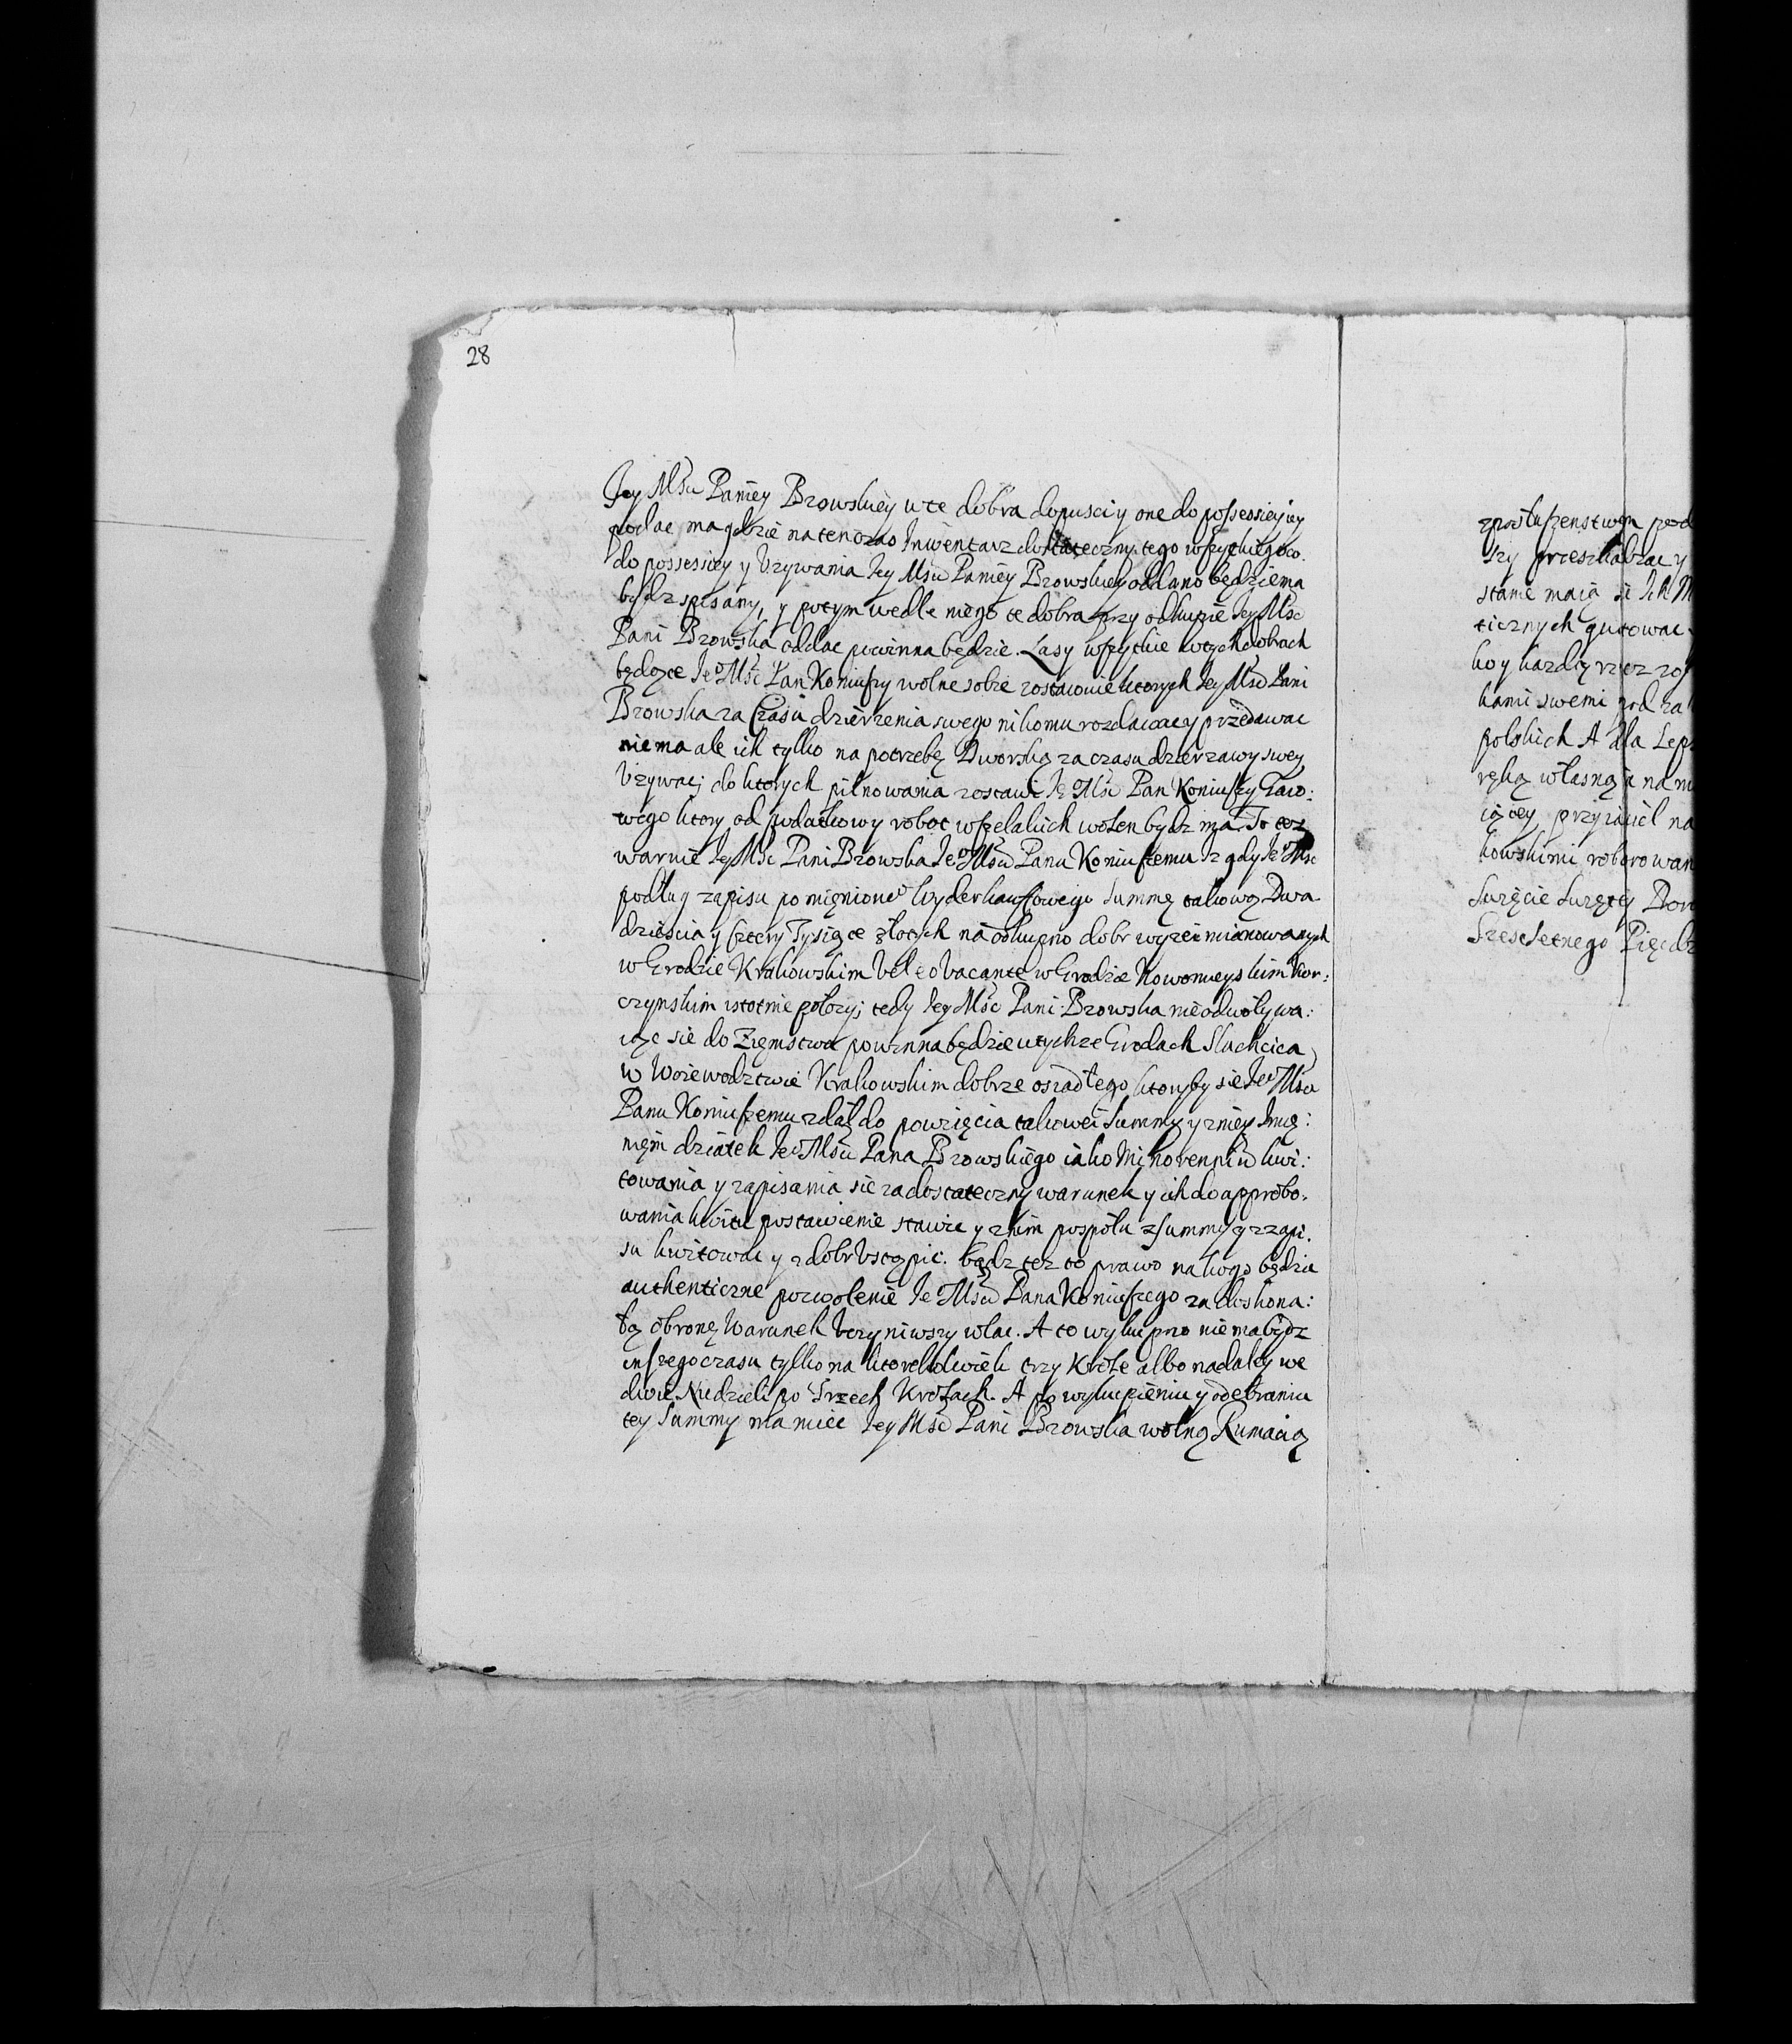 28
Jey Mści Paniey Brzowskiey w te dobra dopuscić y one do possessiey iey
podac ma gdzie na ten czas Inwentarz dostateczny tego wszytkiego co
do possessiey y Uzywania Jey Mści Paniey Brzowskiey oddano będzie ma
bydz spisany, y potym wedle niego te dobra przy odkupie Jey Mśc
Pani Brzowska oddac powinna będzie. Lasy wszytkie w tych dobrach
będące Je° Mśc Pan Koniuszy wolne sobie zostawuie ktorych Jey Mśc Pani
Brzowska za Czasu dzierzenia swego nikomu rozdawac y przedawac
niema ale ich tylko na potrzebę Dworską za czasu dzierzawy swey
Uzywac; do ktorych pilnowania zostawi Je° Mśc Pan Koniuszy Gaio:
wego ktory od podatkow y robot wszelakich wolen bydz ma. To tez
waruie Jey Mśc Pani Brzowska Je° Mści Panu Koniuszemu iz gdy Je° Mśc
podług zapisu pomięnione° Wyderkauffowego Summę takową Dwa
dziescia y Cztery Tysiące złotych na odkupno dobr wyzei mianowanych
w Grodzie Krakowskim Vel eo Vacante w Grodzie Nowomieyskim Kor:
czynskim istotnie połozy; tedy Jey Mśc Pani Brzowska nieodwoływa:
iąc sie do Zięmstwa powinna będzie w tychze Grodach Slachcica
w Woiewodztwie Krakowskim dobrze osiadłego ktoryby sie Je° Mści
Panu Koniuszemu zdał do powzięcia takowei Summy y z niey Imię:
nięm dziatek Je° Mści Pana Brzowskiego iako Minorenniu kwi:
towania y zapisania sie za dostateczny warunek y ich do approbo:
wania kwitu postawienie stawic y z nim pospołu z Summy y z zapi:
su kwitowac y z dobr Ustąpic. bądz tez to prawo na kogo będzie
authenticzne pozwolenie Je° Mści Pana Koniuszego za doskona:
łą obronę Warunek Uczyniwszy wlac. A to wykupno niema bydz
inszego czasu tylko na ktorekolwiek trzy Krole albo nadaley we
dwie Niedzieli po Trzech Krolach. A po wykupieniu y odebraniu
tey Summy ma miec Jey Mśc Pani Brzowska wolną Rumacią
z posłuszenstwem
szy przeszkadzac y
stanie maią sie Ich M
ticznych gutowac
ko y kazdą rzecz
kami swemi pod za
polskich A dla Lep
ręką własną
iącey przyiaciel na
kowskimi roborowan
Swięcie Swiętey
Szescsetnego Pięcdz